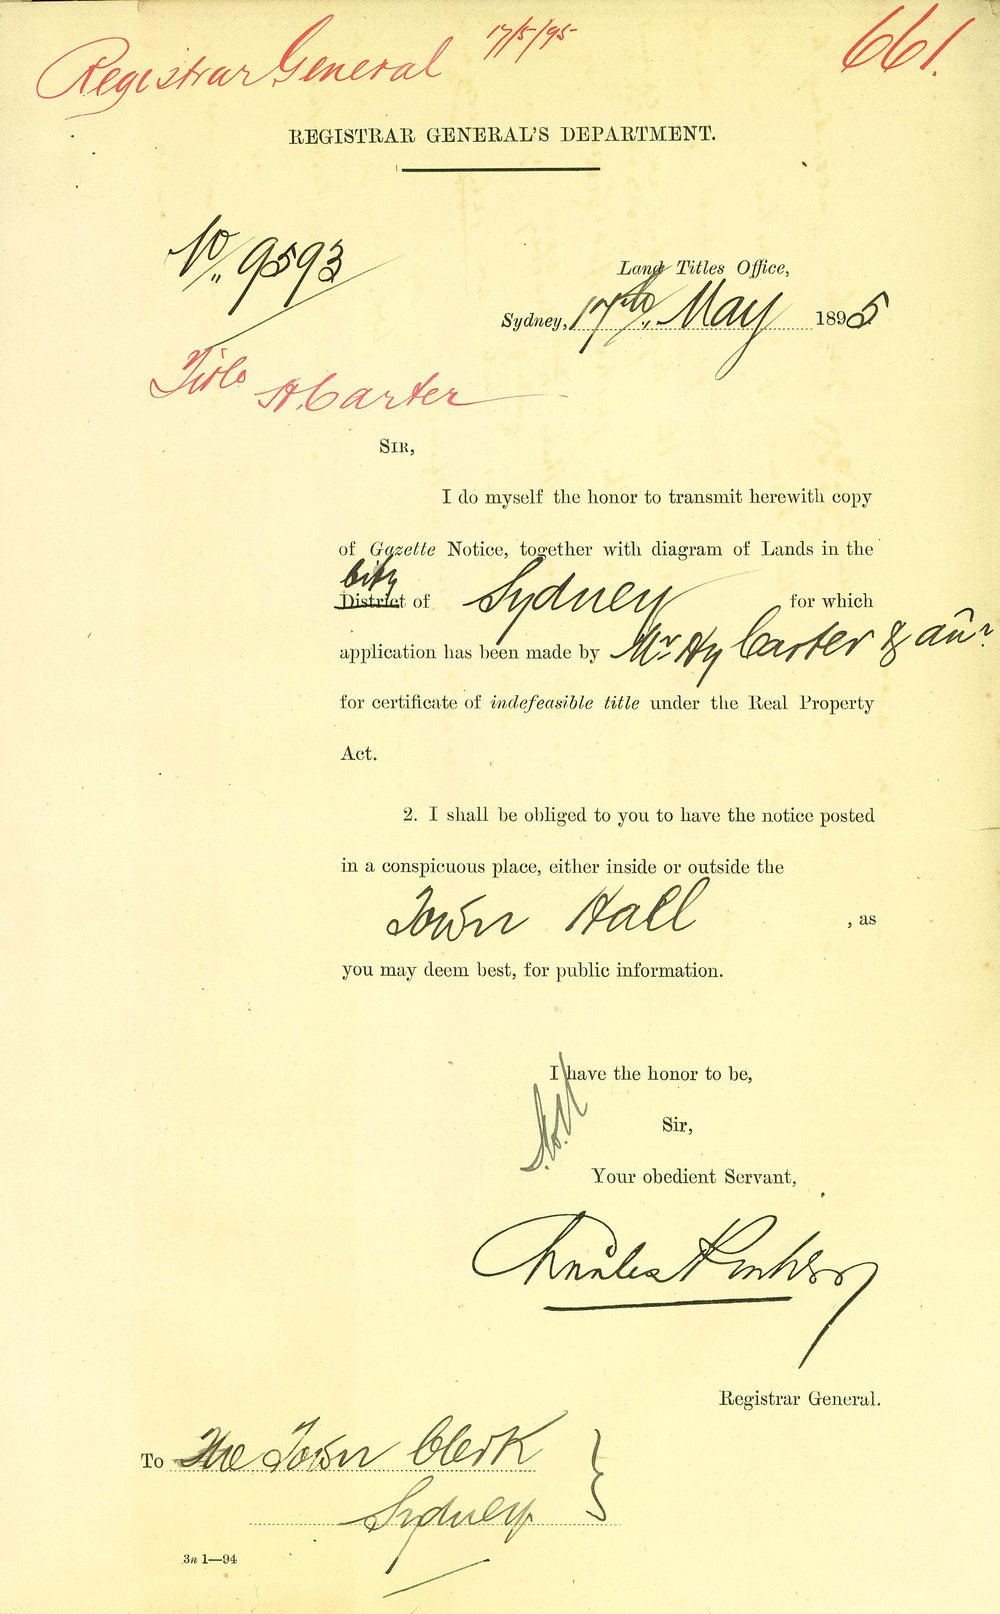 Registrar General 17/5/95 661.
REGISTRAR GENERAL'S DEPARTMENT.
No 9593
Land Titles Office,
Sydney, 17th May 1895
Title H. Carter
SIR,
I do myself the honor to transmit herewith copy
of Gazette Notice, together with diagram of Lands in the
City
District of Sydney for which
application has been made by Mr Hy Carter & anr
for certificate of indefeasible title under the Real Property
Act.
2. I shall be obliged to you to have the notice posted
in a conspicuous place, either inside or outside the
Town Hall , as
you may deem best, for public information.
I have the honor to be,
Sir,
Your obedient Servant,
Charles
Registrar General.
To The Town Clerk
Sydney
3n 1—94